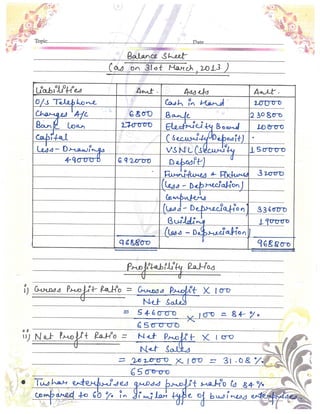 Topic
Date
Balance Sheet
(as on 31st March, 2013)
Liabilities Amt. Assets Amt.
O/s Telephone Cash in Hand 20000
Charges A/c 6800 Bank 230800
Bank Loan 270000 Electricity Board 10000
Capital (Security Deposit)
Less - Drawings VSNL (Security 150000
490000 692000 Deposit)
Furnitures & Fixtures 32000
(Less - Depreciation)
Computers
(Less - Depreciation) 336000
Building 190000
(Less - Depreciation)
968800 968800
Profitability Ratios
i) Gross Profit Ratio = Gross Profit X 100
Net Sales
= 546000 X 100 = 84 %
650000
ii) Net Profit Ratio = Net Profit X 100
Net Sales
= 202000 X 100 = 31.08 %
650000
• Tushar enterprises gross profit ratio is 84 %
compared to 60 % in similar type of business enterprises.